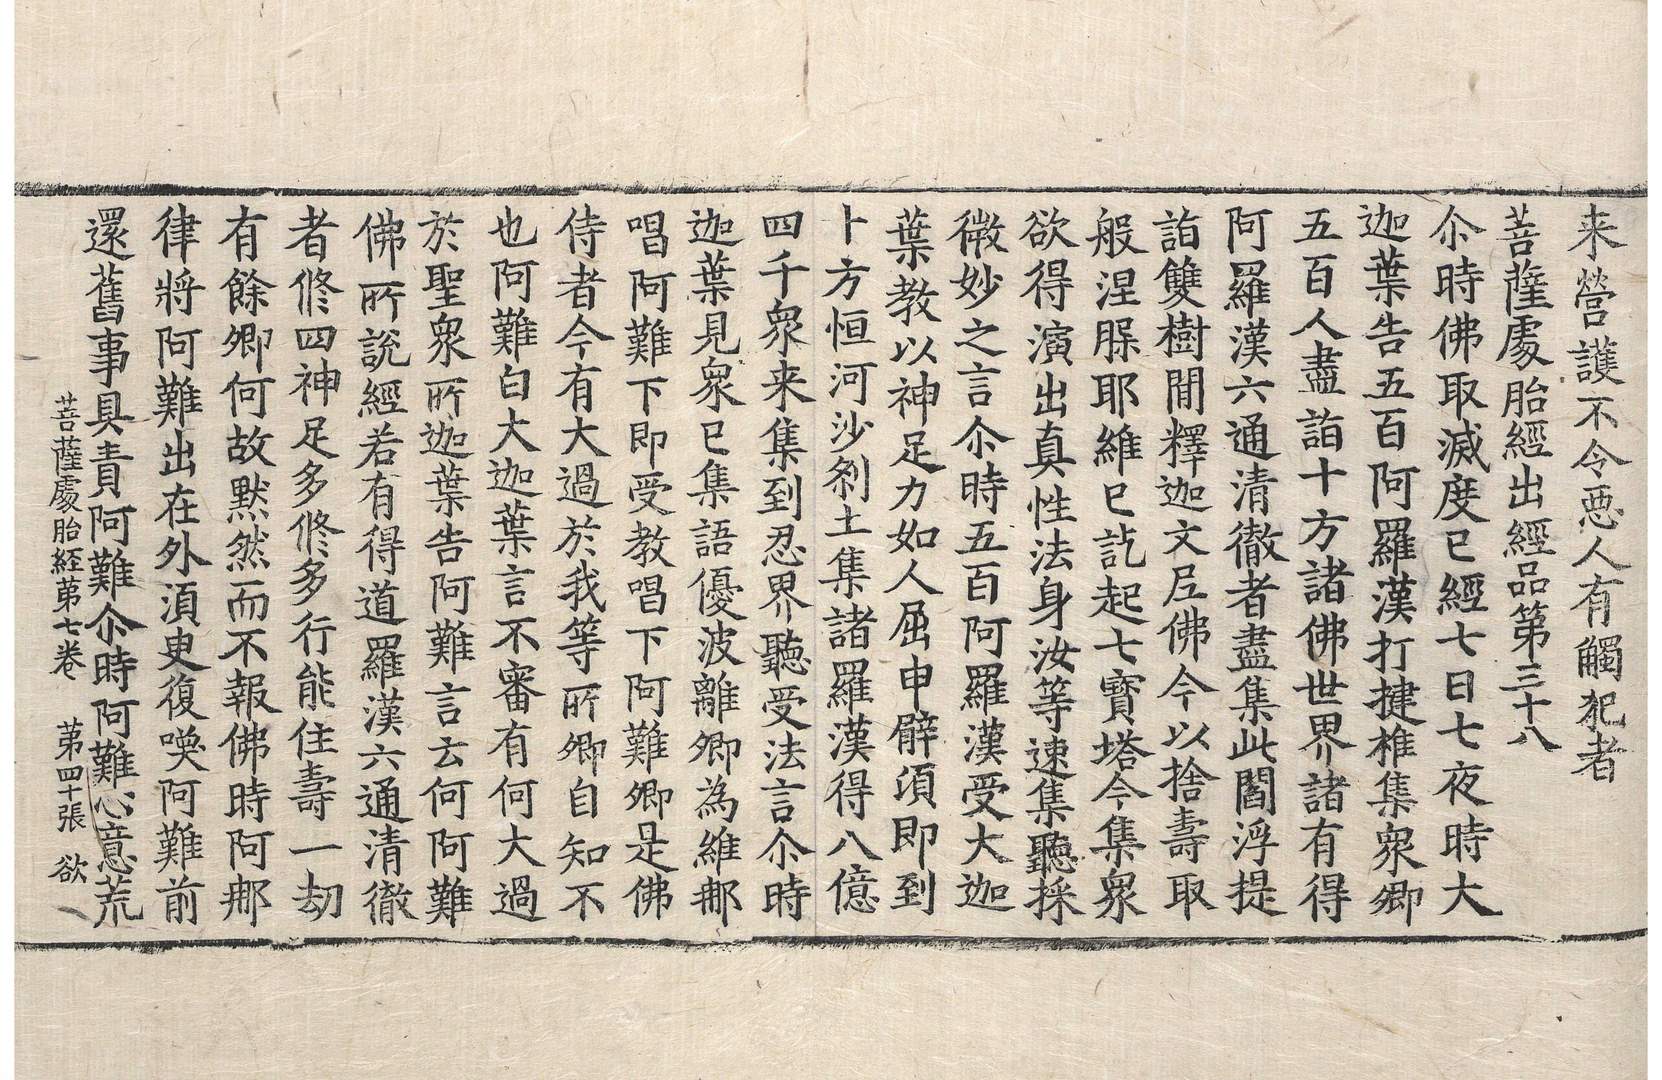 来營護不令惡人有觸犯者
菩薩處胎經出經品第三十八
尒時佛取滅度已經七日七夜時大
迦葉告五百阿羅漢打揵椎集衆卿
五百人盡詣十方諸佛世界諸有得
阿羅漢六通清徹者盡集此閻浮提
詣雙樹閒釋迦文尼佛今以捨壽取
般涅槃耶維已訖起七寶塔今集衆
欲得演出真性法身汝等速集聽採
微妙之言尒時五百阿羅漢受大迦
葉教以神足力如人屈申臂頃即到
十方恒河沙剎土集諸羅漢得八億
四千衆来集到忍界聽受法言尒時
迦葉見衆已集語優波離卿為維郍
唱阿難下即受教唱下阿難卿是佛
侍者今有大過於我等所卿自知不
也阿難白大迦葉言不審有何大過
於聖衆所迦葉告阿難言云何阿難
佛所說經若有得道羅漢六通清徹
者修四神足多修多行能住壽一劫
有餘卿何故默然而不報佛時阿郍
律將阿難出在外湏臾復喚阿難前
還舊事具責阿難尒時阿難心意荒
菩薩處胎経第七卷 第四十張 欲